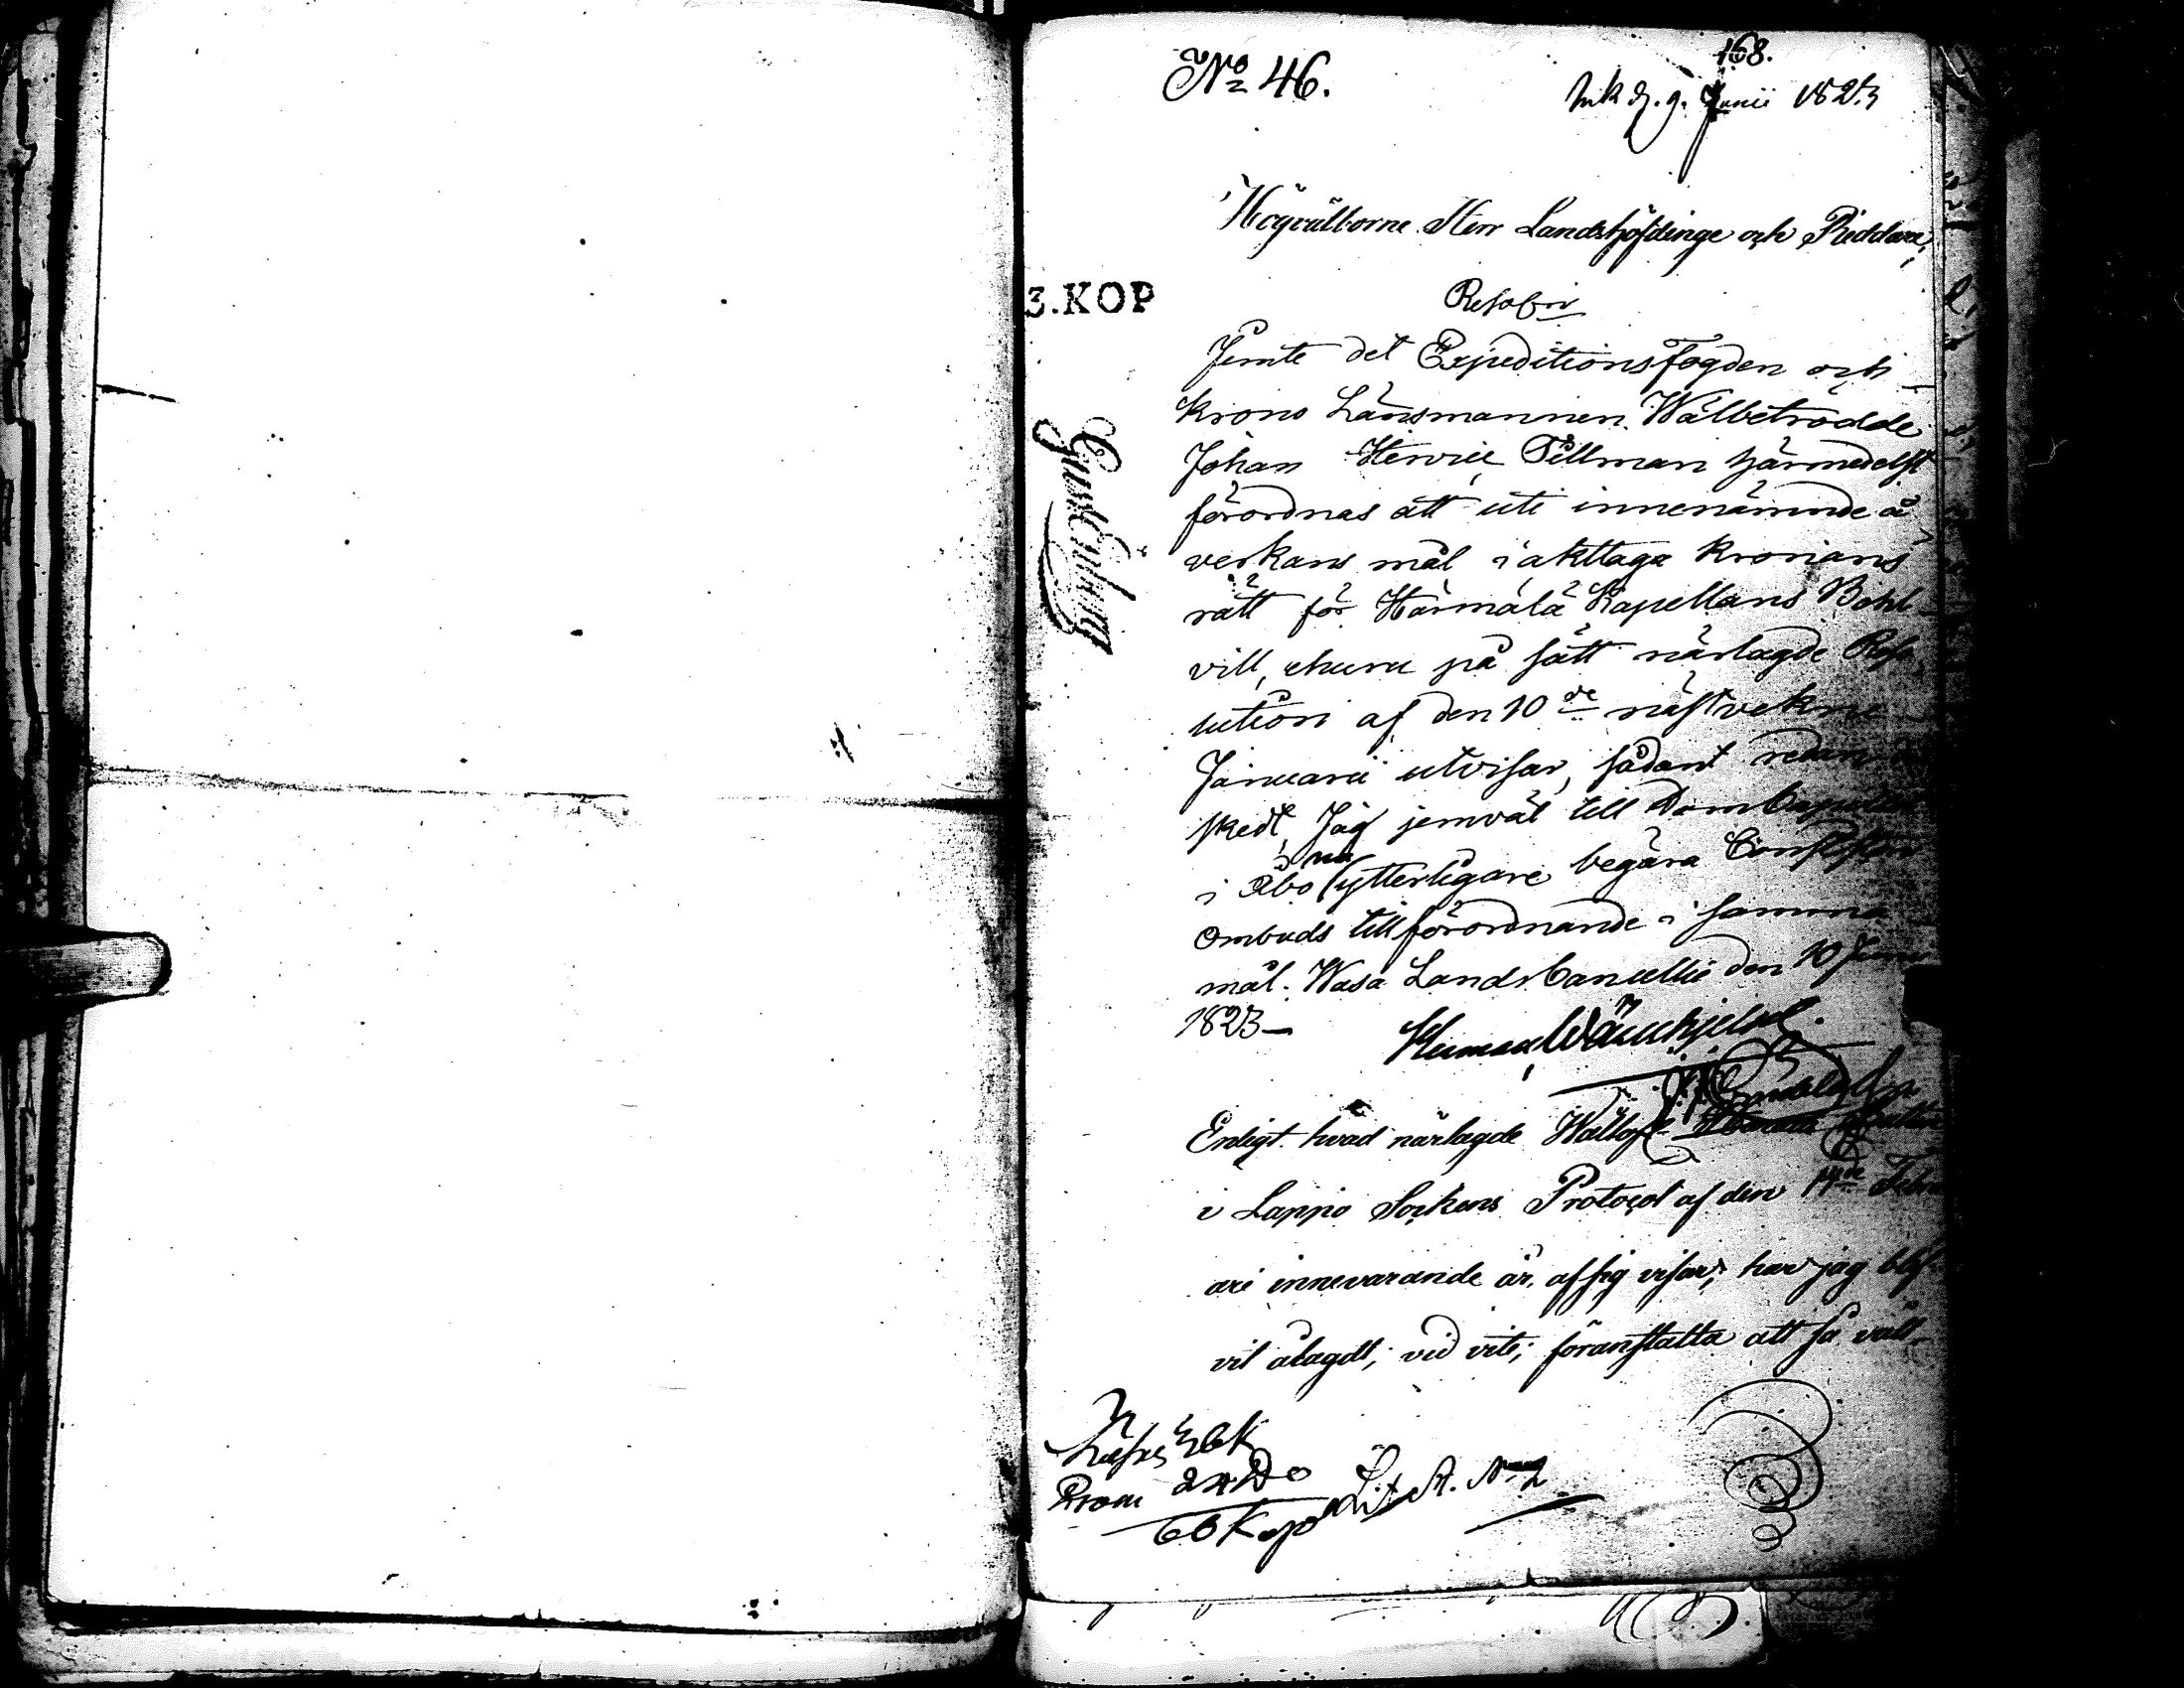 168.
No 46.
Ink d. 9. Junii 1823
Högvälborne Herr Landshöfdinge och Riddare,
3.KOP
Resol:n
Jemte det Expeditionsfogden och
Krono Länsmannen Wälbetrodde
Johan Henric Tillman härmedelst
förordnas att uti innenämnde å
verkans mål iakttaga Kronans
rätt för Härmälä Kapellans Bohl
vill, ehuru på sätt närlagde Reso
lution af den 10de nästvekne
Januarii utvisar, sådant redan
skedt, Jag jemväl till DomCapitlet
nu
i Åbo ytterligare begära Consistorii
Ombuds tillförordnande i samma
mål. Wasa LandsCancellie den 10 Junii
1823 —
Herman Wärnhjelm.
Enligt hvad närlagde Wällofl.
i Lappo Sockens Protocol af den 14de Febru
ari innevarande år, af sig visar, har jag blif
vit ålagdt, vid vite, föranstalta att så väll
Lösen 36 K
24 Do
60 Kop
Lit A. No 2